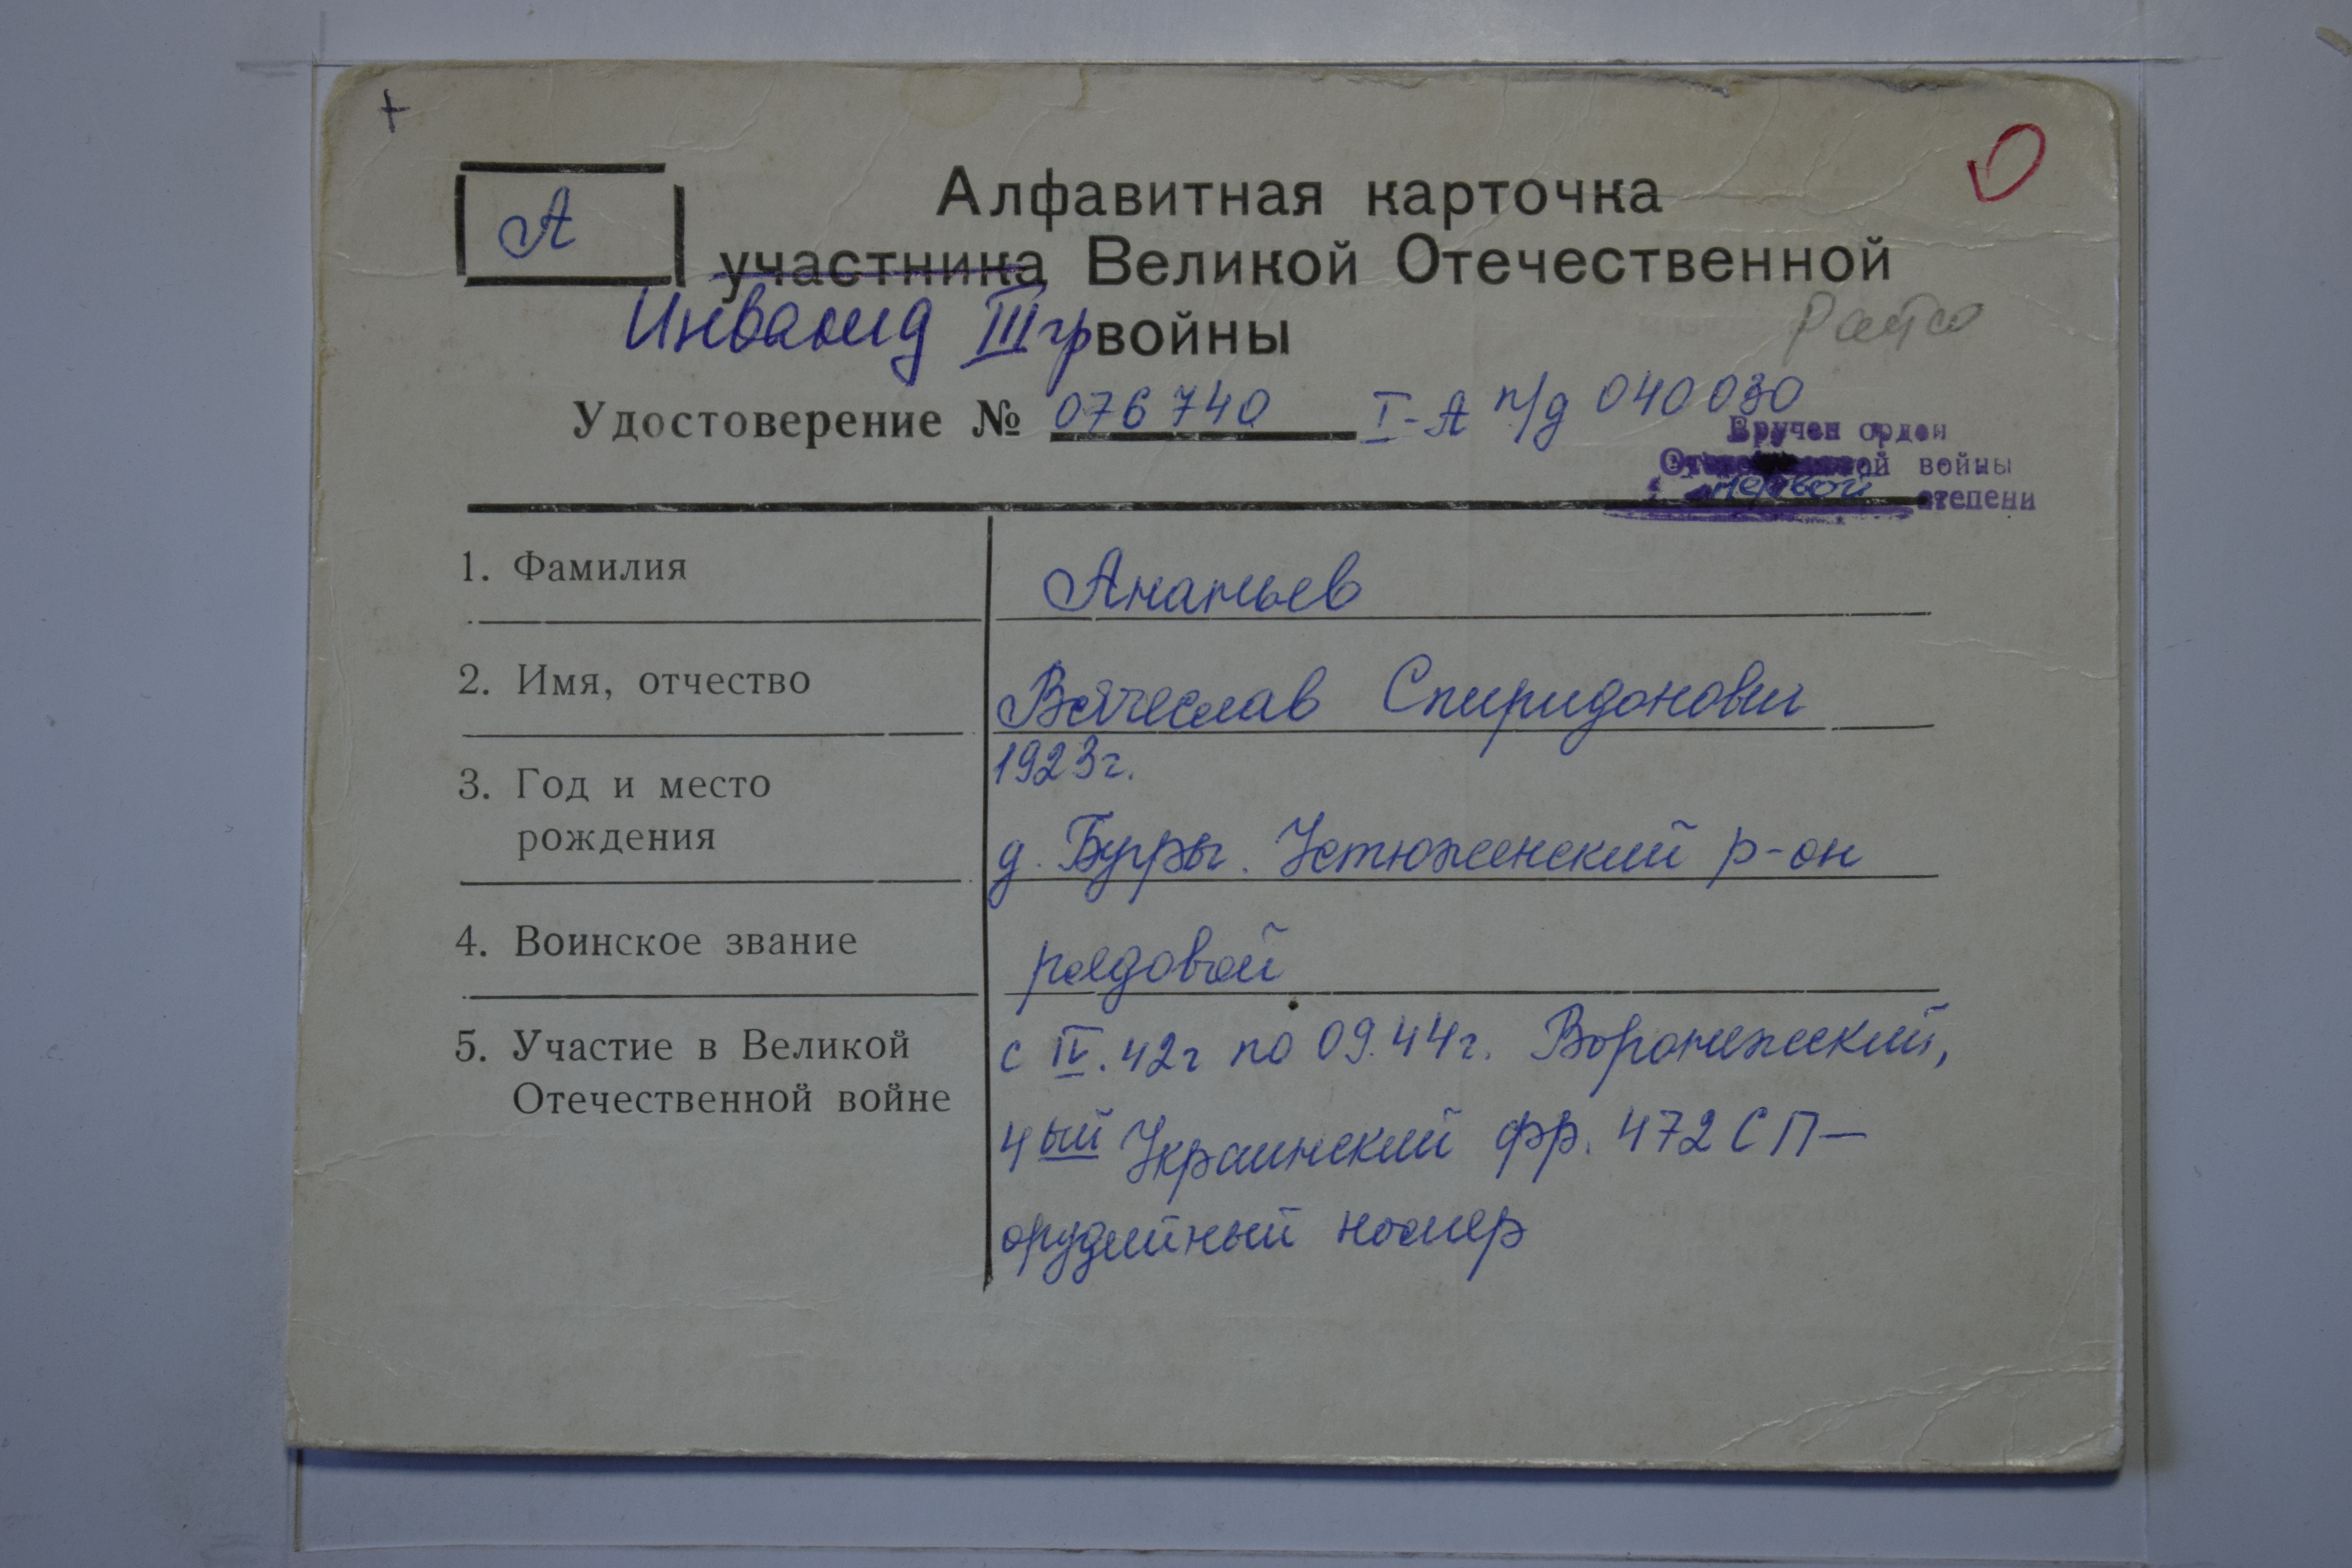 +
А
Алфавитная карточка
участника Великой Отечественной
Инвалид III гр войны
Удостоверение № 076740 I-А п/д 040030
Вручен орден
Отечественной войны
первой степени
1. Фамилия
Ананьев
2. Имя, отчество
Вячеслав Спиридонович
3. Год и место
рождения
1923г.
д. Бугры. Устюженский р-он
4. Воинское звание
рядовой
5. Участие в Великой
Отечественной войне
с IV.42г по 09.44г. Воронежский,
4ый Украинский фр. 472 СП-
орудийный номер